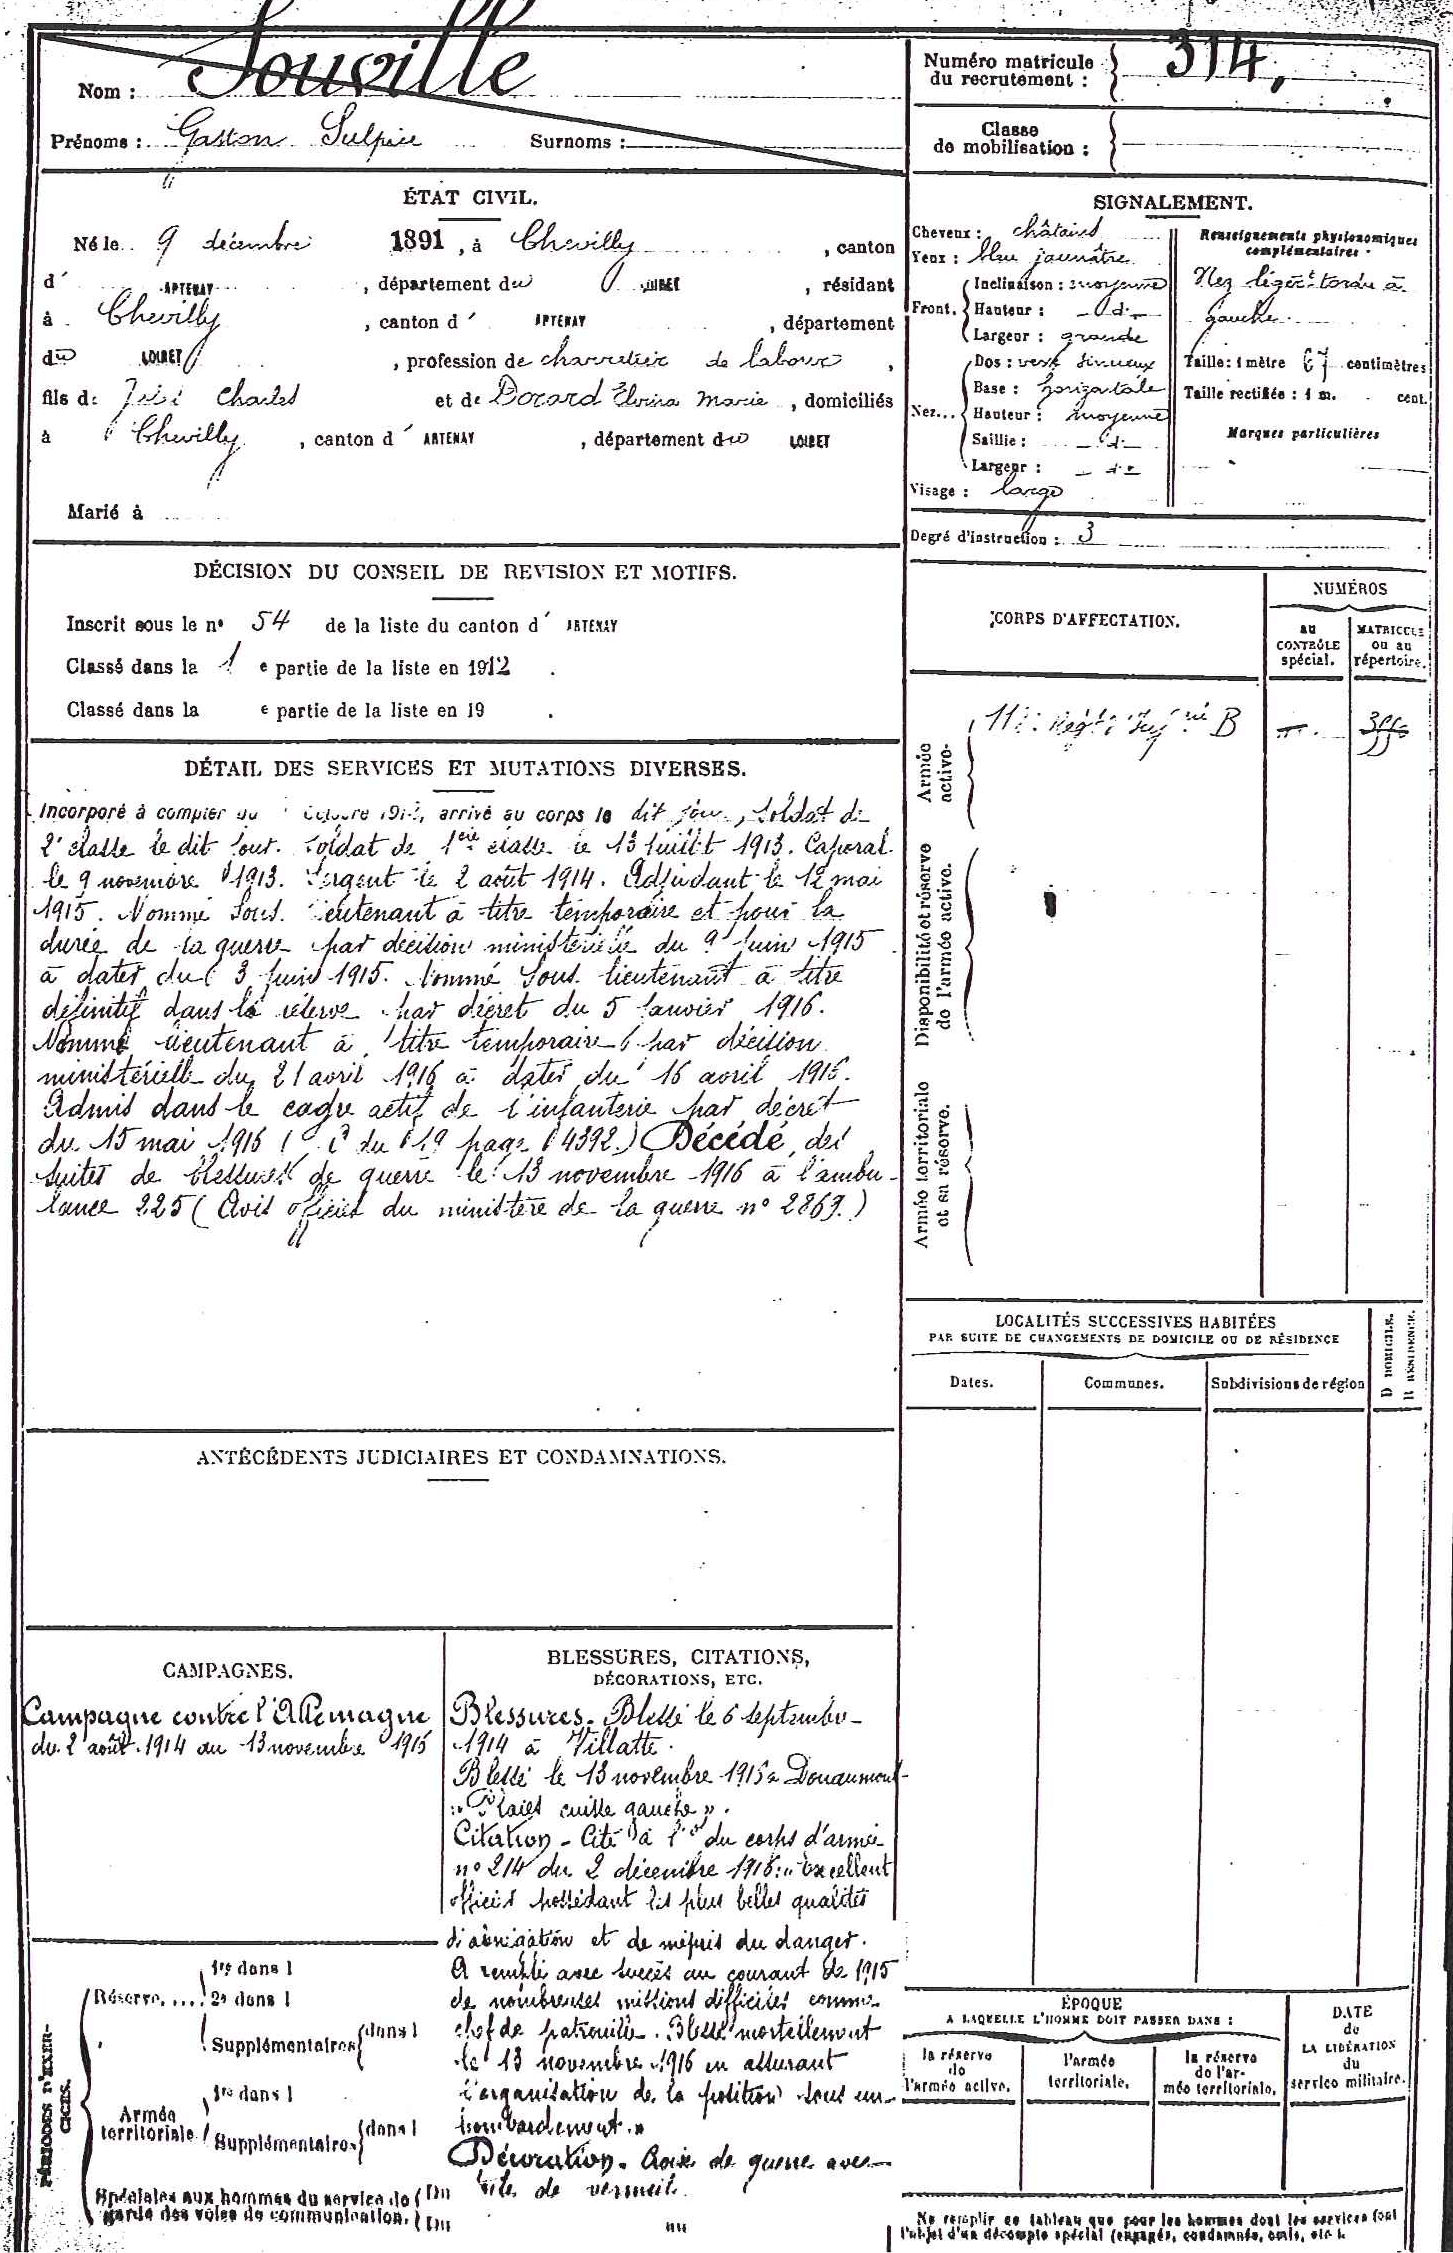 Nom : Souville
Prénoms : Gaston Sulpice Surnoms :
Numéro matricule du recrutement : 314,
Classe de mobilisation :
ÉTAT CIVIL.
Né le 9 décembre 1891, à Chevilly, canton
d' ARTENAY, département du LOIRET, résidant
à Chevilly, canton d' ARTENAY, département
du LOIRET, profession de charretier de labour,
fils de Charles et de Marie, domiciliés
à Chevilly, canton d' ARTENAY, département du LOIRET
Marié à
SIGNALEMENT.
Cheveux : châtains
Yeux : bleu jaunâtre
Front. Inclinaison : moyenne
Hauteur : d°
Largeur : grande
Nez... Dos : sinueux
Base : horizontale
Hauteur : moyenne
Saillie : d°
Largeur : d°
Visage : large
Renseignements physionomiques complémentaires
Nez légèrt tordu à
gauche.
Taille : 1 mètre 67 centimètres
Taille rectifiée : 1 m. cent.
Marques particulières
Degré d'instruction : 3
DÉCISION DU CONSEIL DE REVISION ET MOTIFS.
Inscrit sous le n° 54 de la liste du canton d' ARTENAY
Classé dans la 1 e partie de la liste en 1912.
Classé dans la e partie de la liste en 19 .
CORPS D'AFFECTATION.
NUMÉROS
AU CONTRÔLE spécial.
MATRICULE ou au répertoire.
Armée active.
Régt B
Disponibilité et réserve de l'armée active.
Armée territoriale et sa réserve.
DÉTAIL DES SERVICES ET MUTATIONS DIVERSES.
Incorporé à compter du octobre 1912, arrivé au corps le dit jour, soldat de
2e classe le dit jour. Soldat de 1ère classe le 13 juillet 1913. Caporal
le 9 novembre 1913. Sergent le 2 août 1914. Adjudant le 12 mai
1915. Nommé Sous. lieutenant à titre temporaire et pour la
durée de la guerre par décision ministérielle du 9 juin 1915
à dater du 3 juin 1915. Nommé Sous. lieutenant à titre
définitif dans la réserve par décret du 5 janvier 1916.
Nommé lieutenant à titre temporaire par décision
ministérielle du 21 avril 1916 à dater du 16 avril 1916.
Admis dans le cadre actif de l'infanterie par décret
du 15 mai 1916 ( du 19 page 4392.) Décédé des
suites de blessures de guerre le 13 novembre 1916 à l'ambu-
lance 225 (Avis officiel du ministère de la guerre n° 2869.)
LOCALITÉS SUCCESSIVES HABITÉES
PAR SUITE DE CHANGEMENTS DE DOMICILE OU DE RÉSIDENCE
Dates. Communes. Subdivisions de région D DOMICILE. R RÉSIDENCE.
ANTÉCÉDENTS JUDICIAIRES ET CONDAMNATIONS.
CAMPAGNES.
Campagne contre l'Allemagne
du 2 août 1914 au 13 novembre 1916
BLESSURES, CITATIONS,
DÉCORATIONS, ETC.
Blessures. Blessé le 6 septembre
1914 à Villatte.
Blessé le 13 novembre 1916 à Douaumont
"Plaies cuisse gauche".
Citation - Cité à l'o du corps d'armée
n° 214 du 2 décembre 1916: "Excellent
officier possédant les plus belles qualités
d'abnégation et de mépris du danger.
A rempli avec succès au courant de 1915
de nombreuses missions difficiles comme
chef de patrouille. Blessé mortellement
le 13 novembre 1916 en assurant
l'organisation de la position sous un
bombardement."
Décoration. Croix de guerre avec
étoile de vermeil.
PÉRIODES D'EXERCICES.
Réserve..... 1re dans l
2e dans l
Supplémentaires dans l
Armée territoriale 1re dans l
Supplémentaires dans l
Spéciales aux hommes du service de Du
garde des voies de communication. Du
au
ÉPOQUE
A LAQUELLE L'HOMME DOIT PASSER DANS :
la réserve de l'armée active.
l'armée territoriale.
la réserve de l'armée territoriale.
DATE de LA LIBÉRATION du service militaire.
Ne remplir ce tableau que pour les hommes dont les services font
l'objet d'un décompte spécial (engagés, condamnés, omis, etc.).